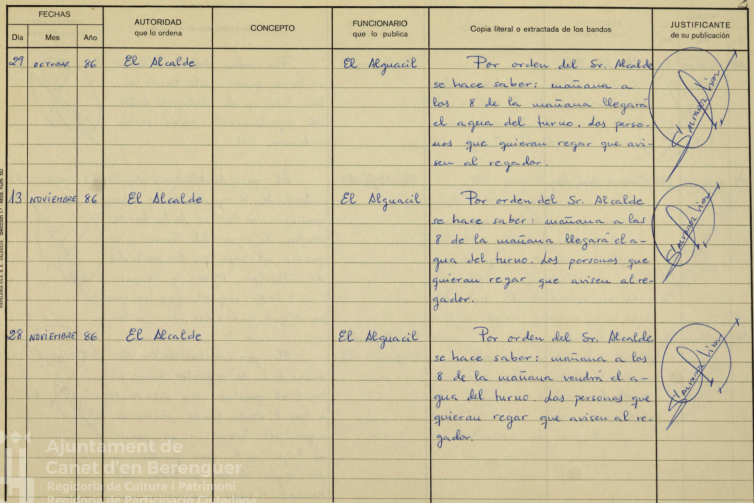 FECHAS
Día Mes Año
AUTORIDAD
que lo ordena
CONCEPTO
FUNCIONARIO
que lo publica
Copia literal o extractada de los bandos
JUSTIFICANTE
de su publicación
29 OCTUBRE 86 El Alcalde El Alguacil Por orden del Sr. Alcalde
se hace saber: mañana a
las 8 de la mañana llegará
el agua del turno. Las perso-
nas que quieran regar que avi-
sen al regador.
13 NOVIEMBRE 86 El Alcalde El Alguacil Por orden del Sr. Alcalde
se hace saber: mañana a las
8 de la mañana llegará el a-
gua del turno. Las personas que
quieran regar que avisen al re-
gador.
28 NOVIEMBRE 86 El Alcalde El Alguacil Por orden del Sr. Alcalde
se hace saber: mañana a las
8 de la mañana vendrá el a-
gua del turno. Las personas que
quieran regar que avisen al re-
gador.
Ajuntament de
Canet d'en Berenguer
Regidoria de Cultura i Patrimoni
Regidoria de Participació Ciutadana